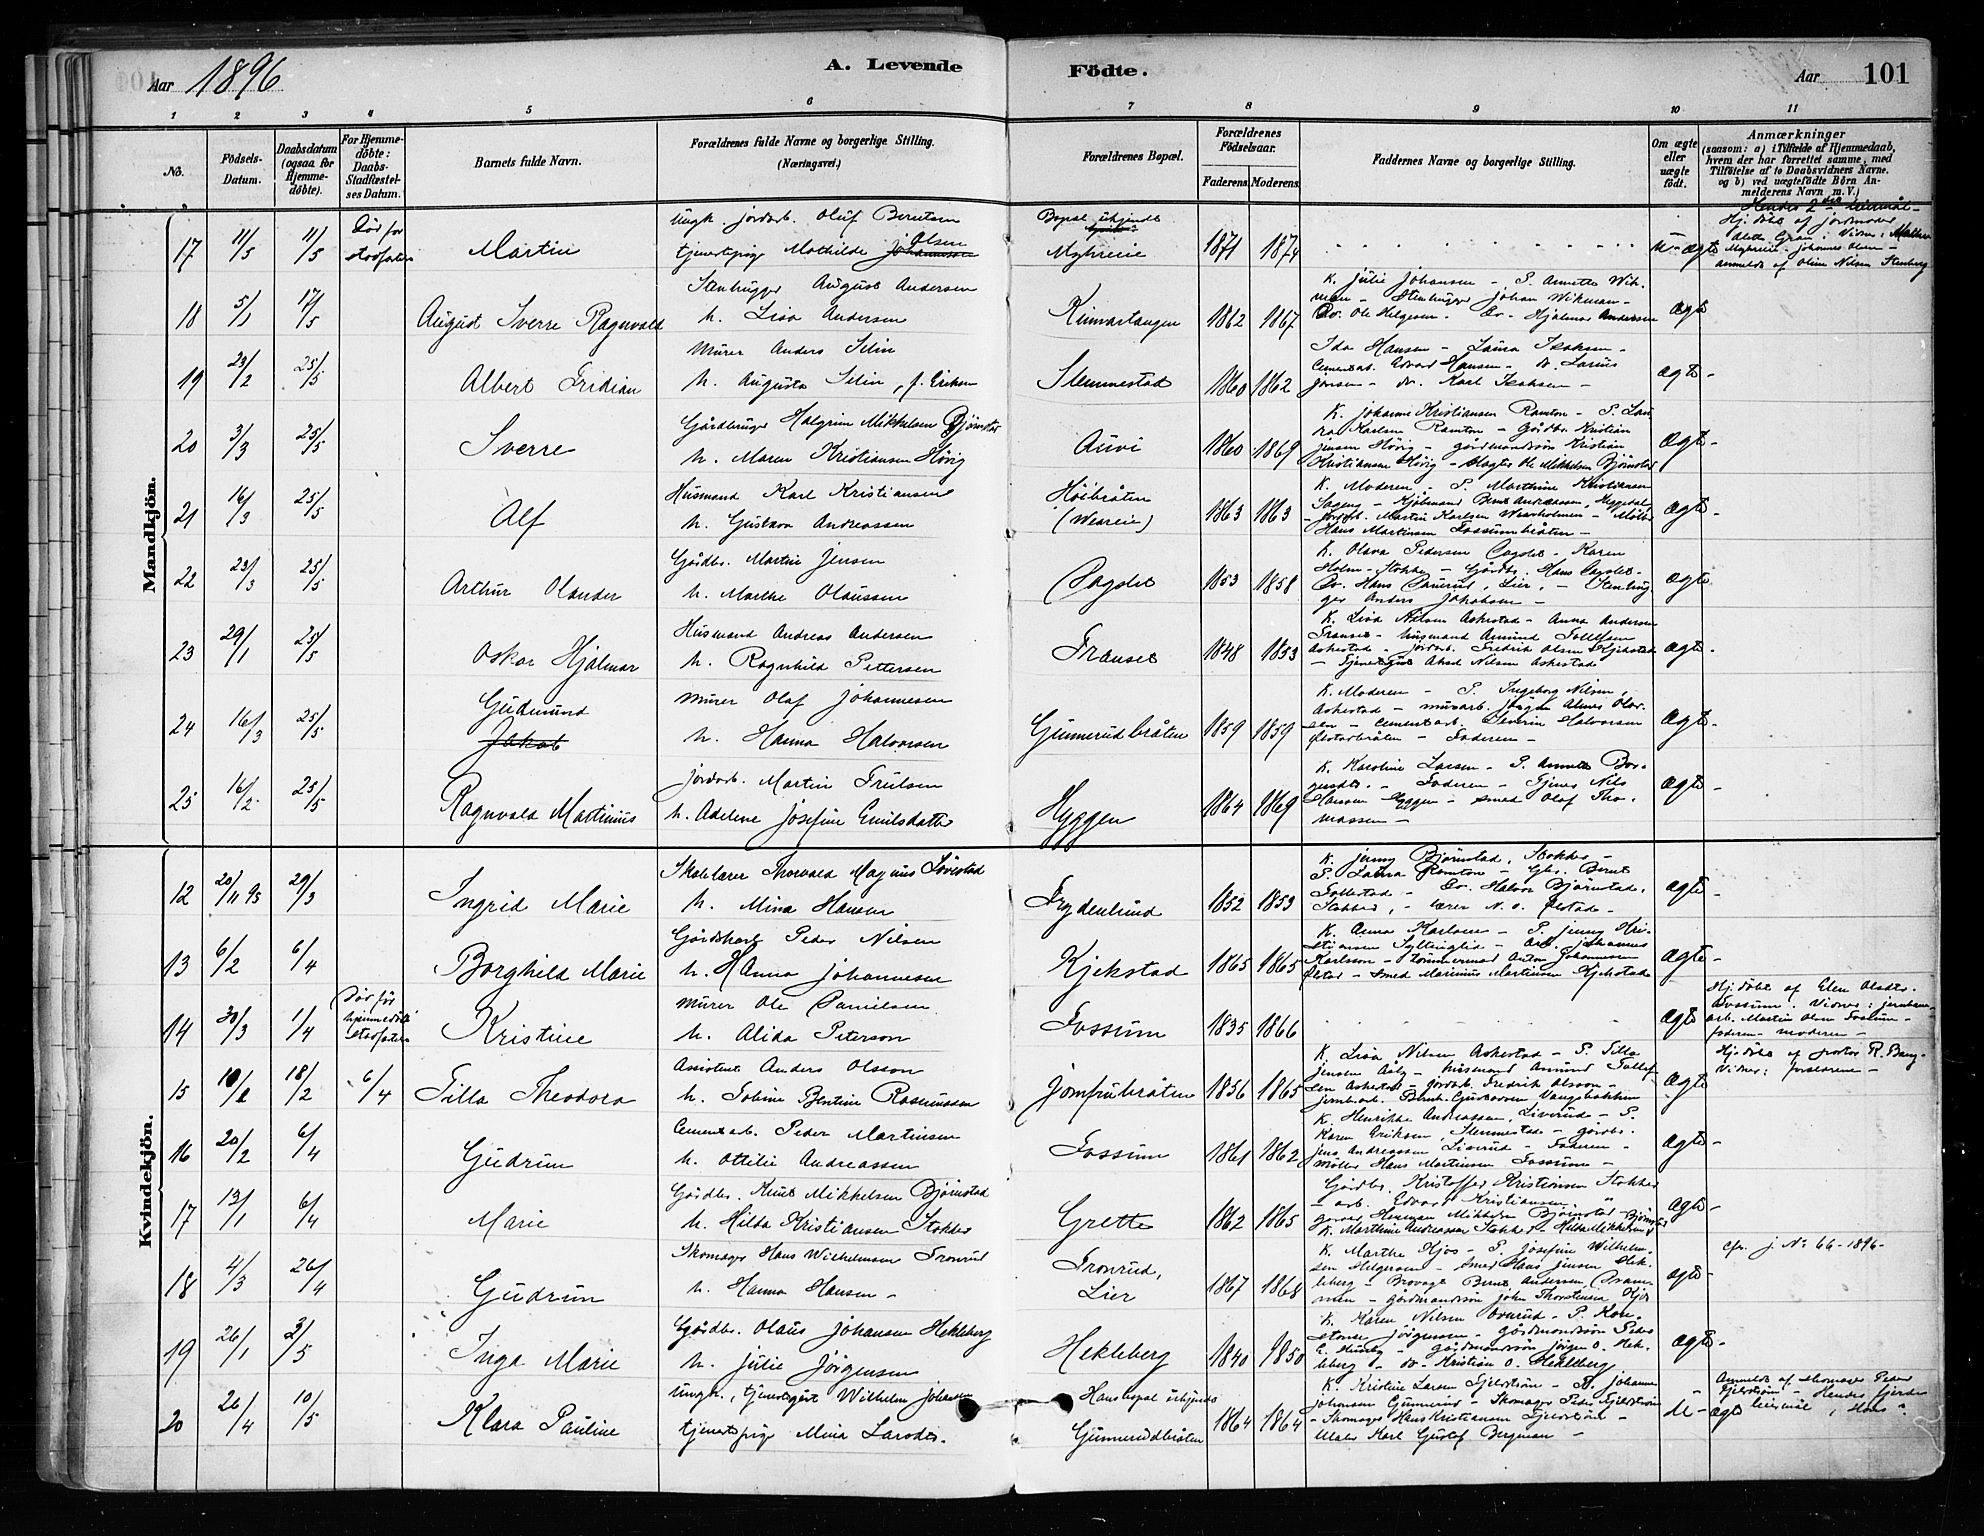 Aar 1896 A. Levende Födte. Aar 101
1 2 3 4 5 6 7 8 9 10 11
No.
Födsels-Datum.
Daabsdatum (ogsaa for Hjemme-döbte).
For Hjemme-döbte: Daabs-Stadfæstel-ses Datum.
Barnets fulde Navn.
Forældrenes fulde Navne og borgerlige Stilling. (Næringsvei.)
Forældrenes Bopæl.
Forældrenes Födselsaar.
Faderens. Moderens.
Faddernes Navne og borgerlige Stilling.
Om ægte eller uægte födt.
Anmærkninger
(saasom: a) i Tilfælde af Hjemmedaab,
hvem der har forrettet samme, med
Tilföielse af to Daabsvidners Navne.
og b) ved uægtefödte Börn An-
melderens Navn m. V.)
Mandkjön.
17 11/5 11/5 Död før stadfæstes Martin
Ungk. jordarb. Oluf Berntsen
tjenestepige Mathilde Johannesen Olsen
Bopæl ubekjendt
Myhreie 1871 1874 u-ægte
Hj. döbt af jordmoder
anmeldt af Oline Nilsen Stenberg
18 5/1 17/5 August Sverre Ragnvald
Stenhugger August Andersen
h. Lisa Andersen
Kinnartangen 1862 1867
K. Julie Johansen - P. Annette Wik-
man - Stenhugger Johan Wikman -
Dv. Ole Helgesen - Dv. Hjalmar Andersen ægte
19 23/2 25/5 Albert Fridian
Murer Anders Selin
h. Augusta Selin, f. Eriksen
Slemmestad 1860 1862
Ida Hansen - Laura Isaksen -
Cementarb. Edvard Hansen - dv. Larius
Jensen - dv. Karl Isaksen - ægte
20 3/3 25/5 Sverre
Gårdbruger Halgrim Mikkelsen Bjørnstad
h. Maren Kristiansen Høvig
Auvi 1860 1869
K. Johanne Kristiansen Ramton - P. Lau
ra Karlsen Ramton - Gårdbr. Kristian
Jensen Høvig - gårdmandssøn Kristian
Kristiansen Høvig - Slagter Ole Mikkelsen Bjørnstad ægte -
21 16/3 25/5 Alf
Husmand Karl Kristiansen
h. Gustava Andreassen
Høibråten
(Weareie) 1863 1863
K. Moderen - P. Marthine Kristiansen
jordarb. Martin Karlsen Wearholmen - Møller
Hans Martinsen Fossumbråten - ægte -
22 23/3 25/5 Arthur Olander
Gårdbr. Martin Jensen
h. Marthe Olaussen
1853 1858
K. Olava Pedersen - Karen
Holm - Stokke - Gårdbr. Hans
Lier, Stenhug
ger Anders Jakobsen - ægte
23 29/1 25/5 Oskar Hjalmar
Husmand Andreas Andersen
h. Ragnhild Pettersen
Franset 1848 1853
K. Lisa Nilsen Askestad - Anna Andersen
Franset - husmand Amund Tollefsen
Askestad - jordarb. Fredrik Olsen Kjekstad
- Tjenestegut Aksel Nilsen Askestad ægte -
24 16/3 25/5 Gudmund Jakob
Murer Olaf Johannesen
h. Hanna Halvorsen
Gunnerudbråten 1859 1859
K. Moderen - P. Ingeborg Nilsen,
Askestad - murarb. Jørgen
sen - Cementarb. Severin Halvorsen
- Faderen - ægte -
25 16/2 25/5 Ragnvald Martinius
Jordarb. Martin Trulsen
h. Adeline Josefine Emilsdatter
Hyggen 1864 1869
K. Karoline Larsen - P. Annette Bor-
- Faderen - Tjener Nils
Hansen Hyggen - Smed Olaf Tho-
massen - ægte -
Kvindekjön.
12 20/11 95 29/3 Ingrid Marie
Skolelærer Thorvald Magnus Søvestad
h. Mina Hansen
Frydenlund 1852 1853
K. Jenny Bjørnstad, Stokker -
P. Laura Ramton - Gbr. Bernt
Tollestad - Dv. Halvor Bjørnstad,
Stokker, - Lærer N. O. Ølstad - ægte -
13 6/2 6/4 Borghild Marie
Gårdskarl Peder Nilsen
h. Hanna Johannesen
Kjekstad 1865 1865
K. Anna Karlsen - P. Jenny Kri-
stiansen Syltinglid - Arb. Johannes
Karlsson - Tømmermand Anton Johannesen
Ølstad - Smed Marinius Martinsen Kjekstad ægte -
14 30/3 1/4 Död før hjemmedåb stadfæstes Kristine
Murer Ole Danielsen
h. Alida Peterson
Fossum 1835 1866 ægte
Hj. döbt af Elen Olsdtr.
Fossum. Vidner: jernbane
arb. Martin Olsen Fossum -
faderen - moderen -
15 10/2 18/2 6/4 Tilla Theodora
Assistent Anders Olsson
h. Tobine Bentine Rasmussen
Jomfrubråten 1856 1865
K. Lisa Nilsen Askestad - P. Tilla
Jensen - husmand Amund Tollef
sen Askestad - jordarb. Fredrik Olsson -
jernb.arb. Bernt Gustavsen ægte -
Hj. döbt af pastor R. Bang -
Vidner: forældrene -
16 20/2 6/4 Gudrun
Cementarb. Peder Martinsen
h. Ottilie Andreassen
Fossum 1861 1862
K. Henrikke Andreassen, Liverud - P.
Karen Eriksen, Slemmestad - gårdbr.
Jens Andreassen Liverud - Faderen -
Møller Hans Martinsen Fossum - ægte -
17 13/1 6/4 Marie
Gårdbr. Knut Mikkelsen Bjørnstad
h. Hilda Kristiansen Stokker
Grette 1862 1865
Gårdbr. Kristoffer Kristiansen Stokker
- arb. Edvard Kristiansen "
Herman Mikkelsen Bjørnstad
K. Marthine Andreassen Stokker - Hilda Mikkelsen ægte -
18 4/3 26/4 Gudrun
Skomager Hans Wilhelmsen Tronrud
h. Hanna Hansen -
Tronrud,
Lier 1867 1868
K. Marthe Kjos - P. Josefine Wilhelm-
sen Helgerson - Smed Hans Jensen Hek-
leberg - Brovagt Bernt Andersen, Dram-
men - gårdmandssøn John Thorstensen Kjos ægte -
cfr. j. No 66-1896-
19 26/1 3/5 Inga Marie
Gårdbr. Olaus Johansen Hekleberg
h. Julie Jörgensen
Hekleberg 1840 1850
K. Karen Nilsen Overud - P. Kon-
stanse Jørgensen - gårdmandssøn Peder
- gårdmandssøn Jørgen O. Hek-
leberg - dv. Kristian O. Hekleberg ægte -
20 26/4 10/5 Klara Pauline
Ungk., tjenestegut Wilhelm Johansen
tjenestepige Mina Larsdtr.
Hans bopæl ubekjendt
Gunnerudbråten 1864 1864
K. Kristine Larsen Fjeldstrøm - P. Johanne
Johansen Gunnerud - Skomager Peder Fjeldstrøm
- Skomager Hans Kristiansen Fjeldstrøm -
Maler Karl Gustaf Bergman - u-ægte
Anmeldt af skomager Peder
Fjeldstrøm - Hendes fjerde
leiermål, Hans